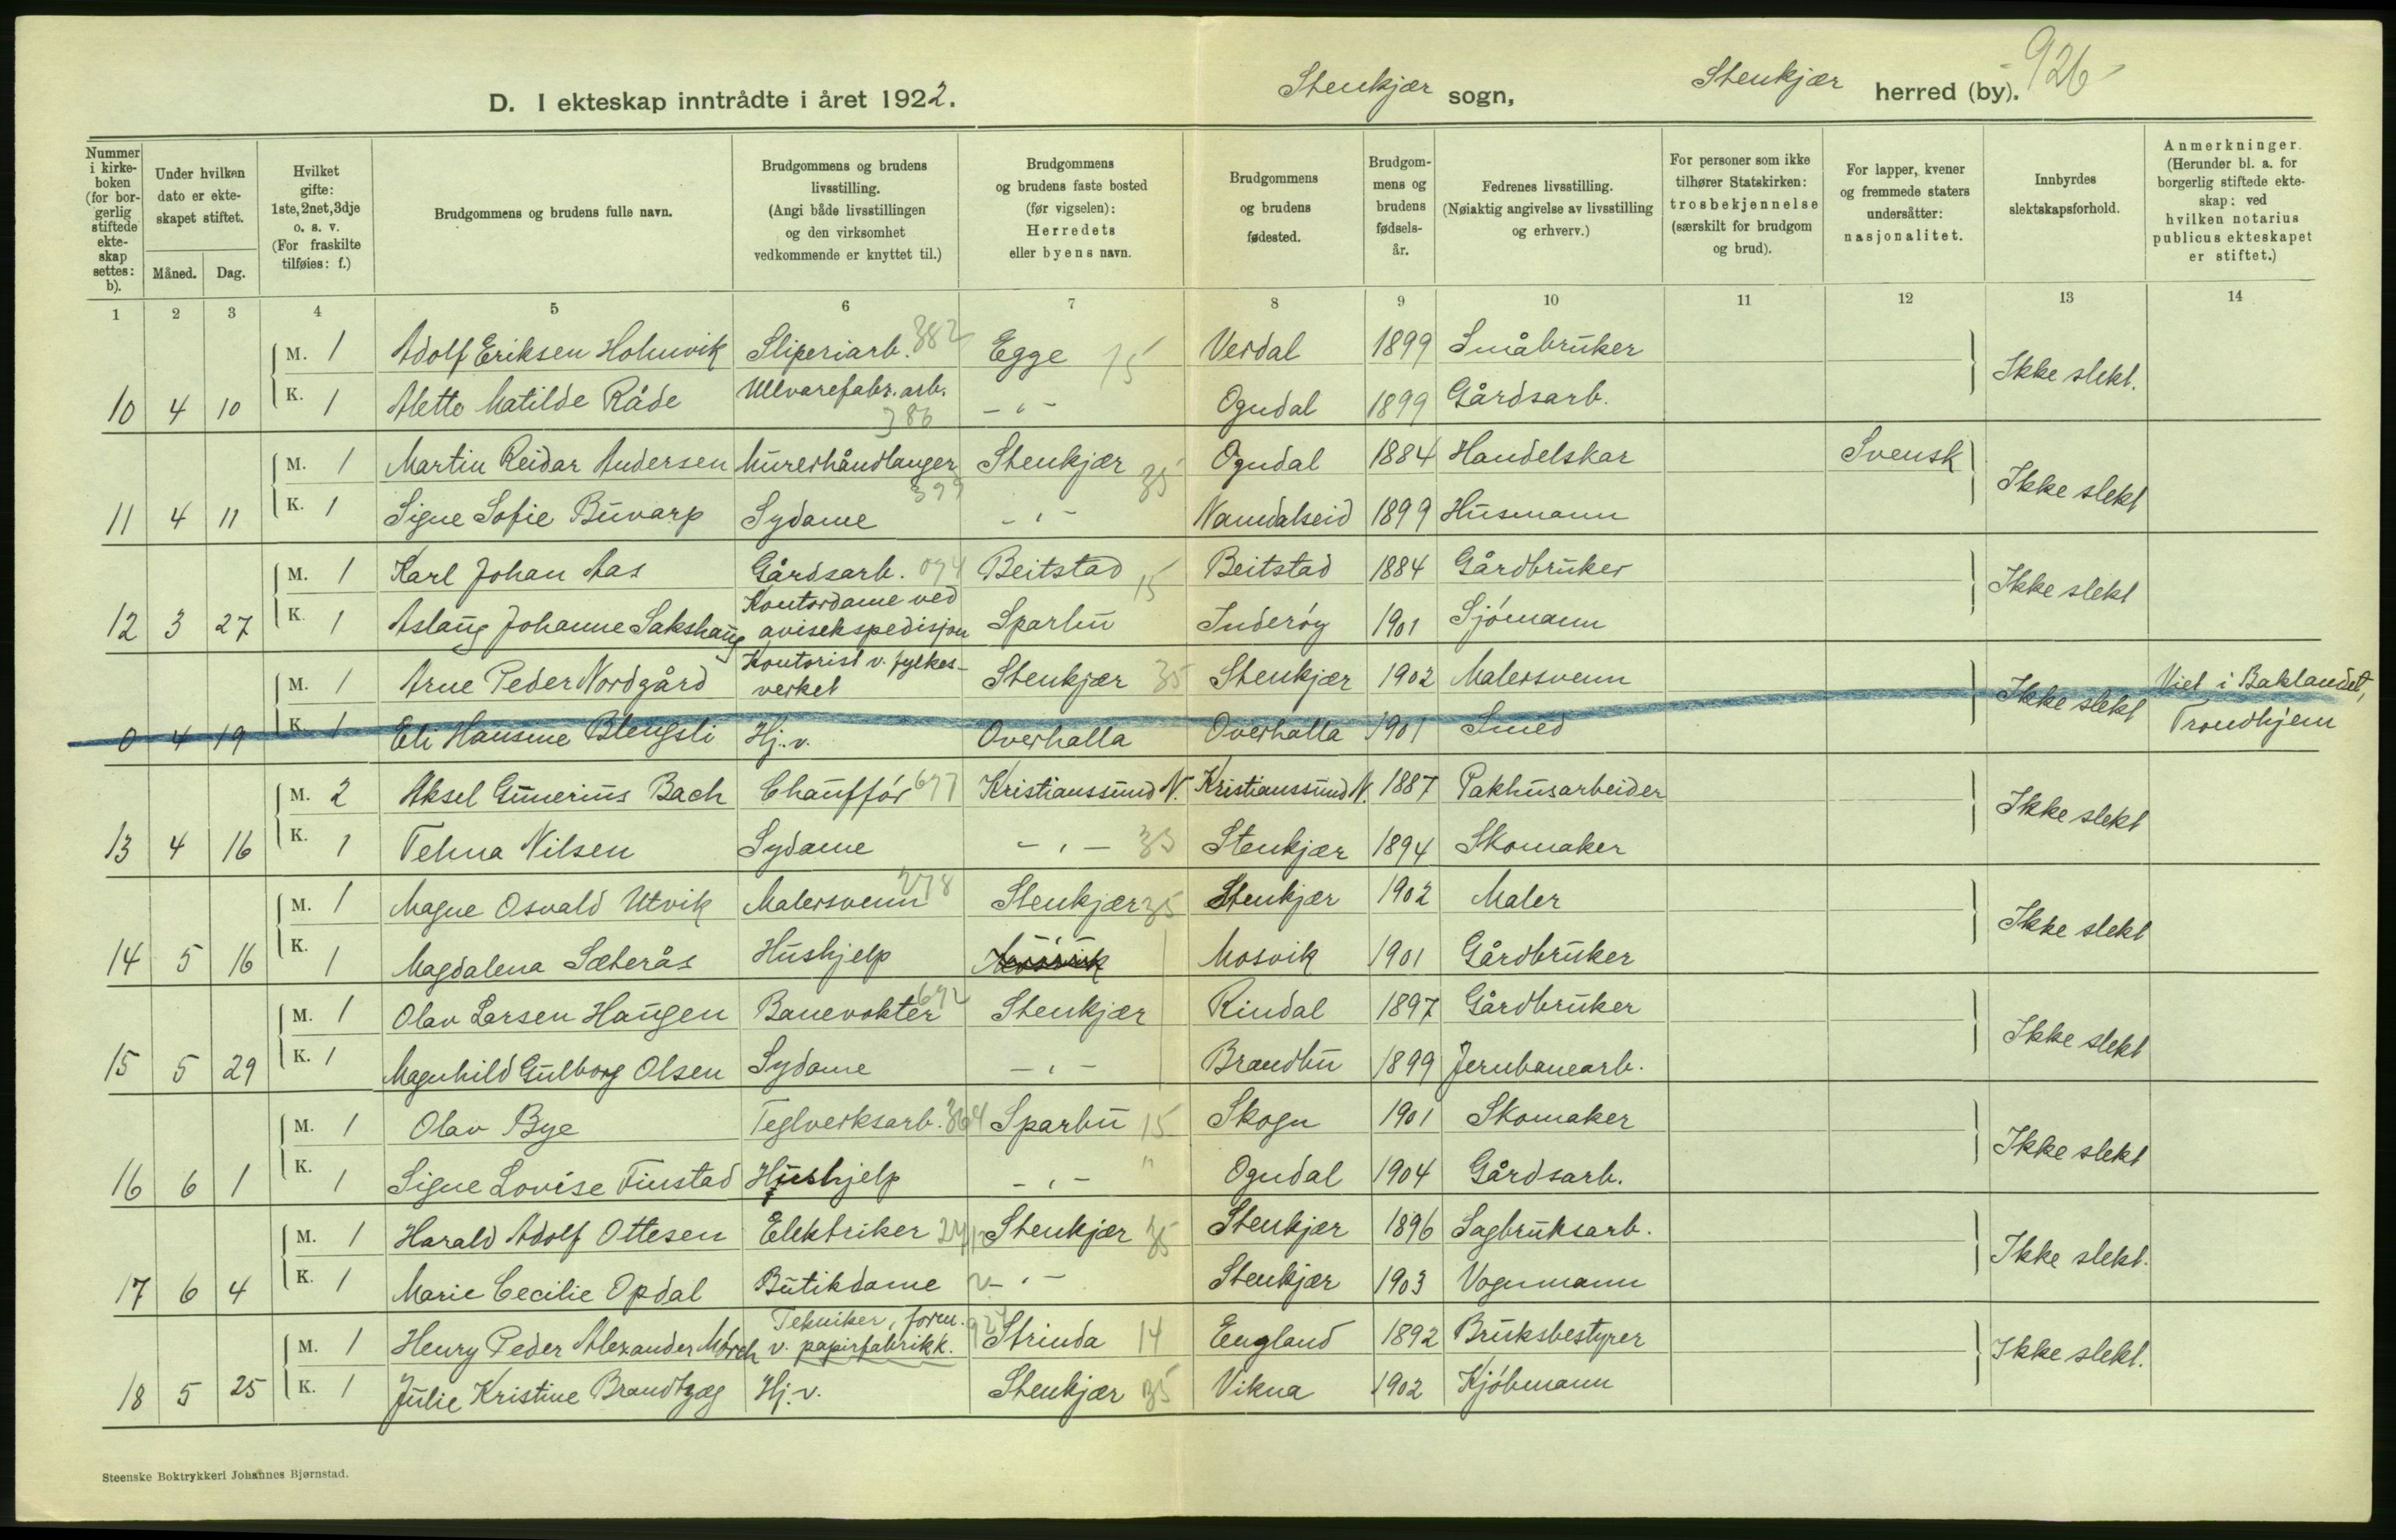 D. I ekteskap inntrådte i året 1922.
Stenkjær sogn,
Stenkjær herred (by).
926
Nummer i kirkeboken (for borgerlig stiftede ekteskap settes: b).
Under hvilken dato er ekteskapet stiftet.
Måned. Dag.
Hvilket gifte: 1ste, 2net, 3dje o. s. v. (For fraskilte tilføies: f.)
Brudgommens og brudens fulle navn.
Brudgommens og brudens livsstilling. (Angi både livsstillingen og den virksomhet vedkommende er knyttet til.)
Brudgommens og brudens faste bosted (før vigselen): Herredets eller byens navn.
Brudgommens og brudens fødested.
Brudgommens og brudens fødselsår.
Fedrenes livsstilling. (Nøiaktig angivelse av livsstilling og erhverv.)
For personer som ikke tilhører Statskirken: trosbekjennelse (særskilt for brudgom og brud).
For lapper, kvener og fremmede staters undersåtter: nasjonalitet.
Innbyrdes slektskapsforhold.
Anmerkninger. (Herunder bl. a. for borgerlig stiftede ekteskap: ved hvilken notarius publicus ekteskapet er stiftet.)
1 2 3 4 5 6 7 8 9 10 11 12 13 14
M. 1 Adolf Eriksen Holmvik Sliperiarb. 382 Egge 15 Verdal 1899 Småbruker
10 4 10 K. 1 Mette Matilde Råde Ullvarefabr. arb. 386 - " - Ogndal 1899 Gårdsarb. Ikke slekt.
M. 1 Martin Reidar Andersen Murerhåndlanger 399 Stenkjær 35 Ogndal 1884 Handelskar Svensk
11 4 11 K. 1 Signe Sofie Buvarp Sydame - " - Namdalseid 1899 Husmann Ikke slekt
M. 1 Karl Johan Aas Gårdsarb. 074 Beitstad 15 Beitstad 1884 Gårdbruker
12 3 27 K. 1 Aslaug Johanne Sakshaug Kontordame ved avisekspedisjon Sparbu Inderøy 1901 Sjömann Ikke slekt
M. 1 Arne Peder Nordgård Kontorist v. fylkesverket Stenkjær 35 Stenkjær 1902 Malersvenn
0 4 19 K. 1 Eli Hansine Blengsli Hj. v. Overhalla Overhalla 1901 Smed Ikke slekt Viet i Baklandet, Trondhjem
M. 2 Aksel Gunerius Bach Chaufför 677 Kristianssund N. Kristianssund N. 1887 Pakhusarbeider
13 4 16 K. 1 Telma Nilsen Sydame - " - 35 Stenkjær 1894 Skomaker Ikke slekt
M. 1 Magne Osvald Utvik Malersvenn 278 Stenkjær 35 Stenkjær 1902 Maler
14 5 16 K. 1 Magdalena Sæterås Hushjelp - " - Mosvik Mosvik 1901 Gårdbruker Ikke slekt
M. 1 Olav Larsen Haugen Banevokter 672 Stenkjær Rindal 1897 Gårdbruker
15 5 29 K. 1 Magnhild Gulborg Olsen Sydame - " - Brandbu 1899 Jernbanearb. Ikke slekt
M. 1 Olav Bye Teglverksarb. 364 Sparbu 15 Skogn 1901 Skomaker
16 6 1 K. 1 Signe Lovise Finstad Hushjelp - " - " Ogndal 1904 Gårdsarb. Ikke slekt
M. 1 Harald Adolf Ottesen Elektriker Stenkjær 35 Stenkjær 1896 Sagbruksarb.
17 6 4 K. 1 Marie Cecilie Opdal Butikdame - " - Stenkjær 1903 Vognmann Ikke slekt.
M. 1 Henry Peder Alexander Mörch Tekniker, form. v. papirfabrikk. Strinda 14 England 1892 Bruksbestyrer
18 5 25 K. 1 Julie Kristine Brandtzæg Hj. v. Stenkjær 35 Vikna 1902 Kjöbmann Ikke slekt.
Steenske Boktrykkeri Johannes Bjørnstad.